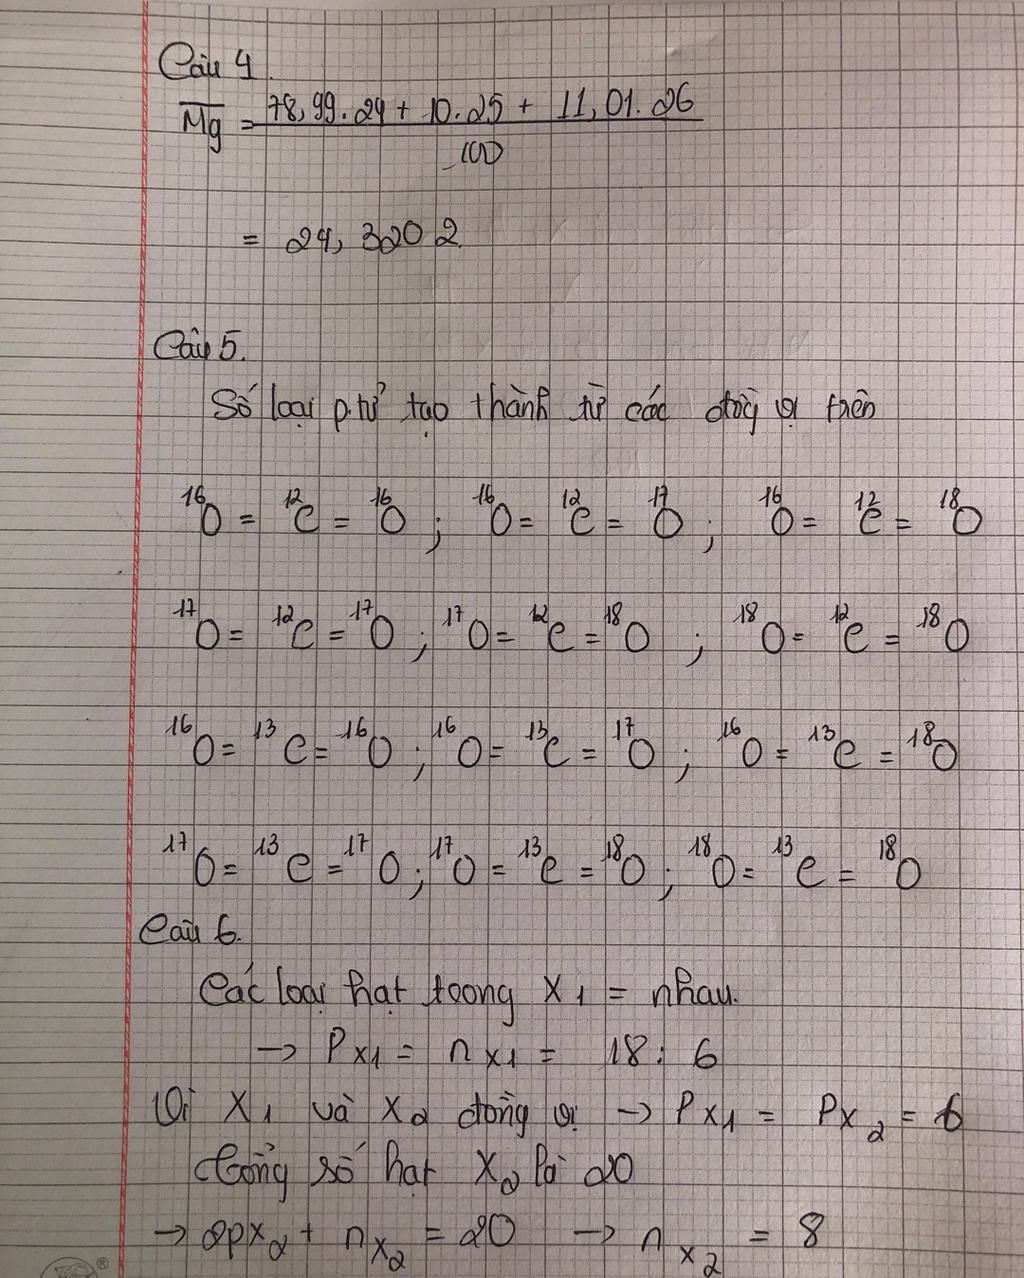 Câu 4.
M̅g̅ = 78,99.24 + 10.25 + 11,01.26
100
= 24,3202
Câu 5.
Số loại p.tử tạo thành từ các đồng vị trên
¹⁶O = ¹²C = ¹⁶O ; ¹⁶O = ¹²C = ¹⁷O ; ¹⁶O = ¹²C = ¹⁸O
¹⁷O = ¹²C = ¹⁷O ; ¹⁷O = ¹²C = ¹⁸O ; ¹⁸O = ¹²C = ¹⁸O
¹⁶O = ¹³C = ¹⁶O ; ¹⁶O = ¹³C = ¹⁷O ; ¹⁶O = ¹³C = ¹⁸O
¹⁷O = ¹³C = ¹⁷O ; ¹⁷O = ¹³C = ¹⁸O ; ¹⁸O = ¹³C = ¹⁸O
Câu 6.
Các loại hạt trong X₁ = nhau.
→ Pₓ₁ = nₓ₁ = 18 : 6
Vì X₁ và X₂ đồng vị → Pₓ₁ = Pₓ₂ = 6
Tổng số hạt X₂ là 20
→ 2pₓ₂ + nₓ₂ = 20 → nₓ₂ = 8